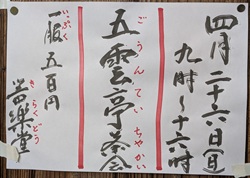 四月二十六日(日)
九時～十六時
五雲亭茶会
ごうんていちゃかい
一服五百円
いっぷく
喜楽堂
きらくどう